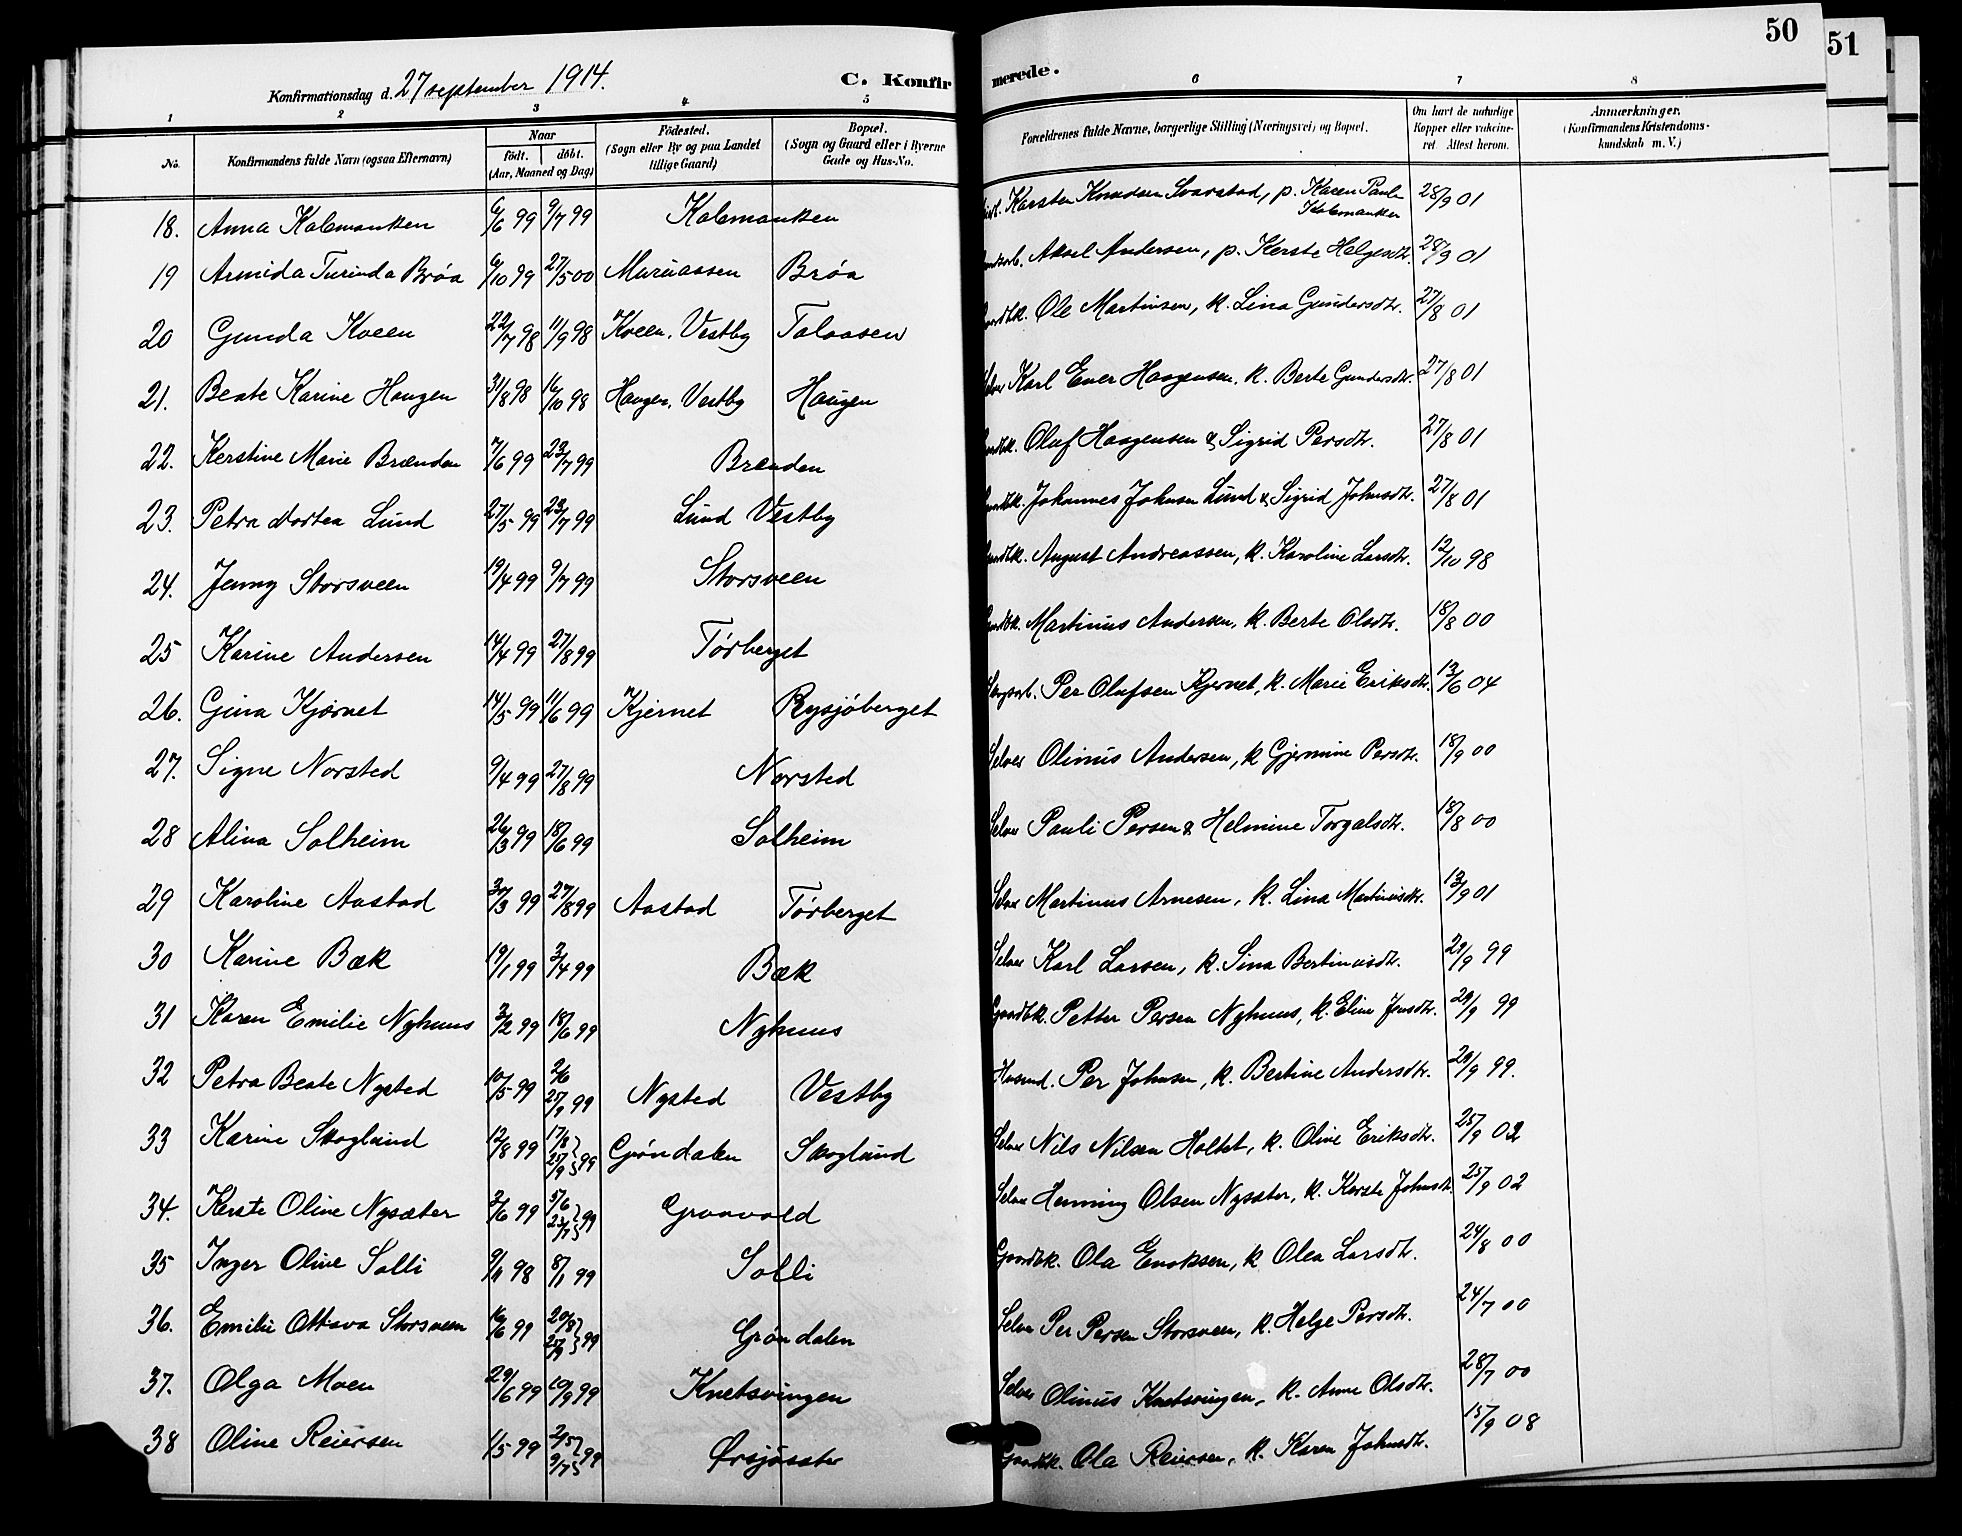 50
51
Konfirmationsdag d. 27 september 1914.
C. Konfir
merede.
1 2 3 4 5 6 7 8
No. Konfirmandens fulde Navn (ogsaa Efternavn) Naar födt. döbt. (Aar, Maaned og Dag) Födested. (Sogn eller By og paa Landet tillige Gaard) Bopæl. (Sogn og Gaard eller i Byerne Gade og Hus-No. Forældrenes fulde Navne, borgerlige Stilling (Næringsvei) og Bopæl. Om havt de naturlige Kopper eller vakcineret. Attest herom. Anmærkninger. (Konfirmandens Kristendomskundskab m. V.)
18. Anna Kolsmanksen 6/6 99 9/7 99 Karsten Knudsen Svarstad, p. Karen Pauls 28/9 01
19 Armida Turinda Brøa 6/10 99 27/5 00 Brøa Aksel Andersen, p. Kerste Helgesdtr. 28/9 01
20 Gunda Kveen 22/7 98 11/9 98 Kveen, Vestby Talaasen Ole Martinsen, k. Lina Gundersdtr. 27/8 01
21. Beate Karine Haugen 31/8 98 16/10 98 Haugen, Vestby Haugen Selve Karl Ever Haagensen, k. Berte Gundersdtr. 27/8 01
22. Kerstine Marie Brænden 7/6 99 23/7 99 Brænden Oluf Haagensen & Sigrid Persdtr. 27/8 01
23. Petra Dortea Lund 27/5 99 23/7 99 Lund Vestby Johannes Johnsen Lund & Sigrid Johnsdtr. 27/8 01
24. Jenny Storsveen 19/4 99 9/7 99 Storsveen August Andreassen, k. Karoline Larsdtr. 12/10 98
25 Karine Andersen 14/4 99 27/8 99 Törberget Martinus Andersen, k. Berte Olsdtr. 18/8 00
26. Gina Kjærnet 14/5 99 11/6 99 Kjernet Rysjöberget Per Olufsen Kjernet, k. Marie Eriksdtr. 13/6 04
27. Signe Norsted 9/4 99 27/8 99 Norsted Selvei Olinus Andersen, k Gjermine Persdtr. 18/9 00
28 Alina Solheim 26/3 99 18/6 99 Solheim Selvei Pauli Persen & Helmine Torgalsdtr. 18/8 00
29 Karoline Aastad 30/3 99 27/8 99 Aastad Törberget Selvei Martinus Arnesen, k. Lina Martinusdtr. 13/9 01
30 Karine Bæk 19/1 99 3/4 99 Bæk Selvei Karl Larsen, k. Sina Bertinusdtr. 29/9 99
31 Karen Emilie Nyhuus 3/2 99 18/6 99 Nyhuus Gaardbk. Petter Persen Nyhuus, k. Eline Jonsdtr. 29/9 99
32 Petra Beate Nysted 10/5 99 2/6 25/9 99 Nysted Vestby Husmd. Per Johnsen, k. Bertine Andersdtr. 29/9 99.
33 Karine Skoglund 12/8 99 17/8 25/9 99 Gröndalen Skoglund Selvei Nils Nilsen Holtet, k. Oline Eriksdtr. 25/9 02
34. Kerste Oline Nysæter 3/6 99 5/6 23/7 99 Graavold Selvei Henning Olsen Nysæter, k. Kerste Johnsdtr. 25/9 02
35 Inger Oline Solli 9/11 98 8/1 99 Solli Gaardbk. Ola Enoksen, k Olea Larsdtr. 24/8 00
36. Emilie Ottava Storsveen 16/6 99 20/8 25/9 99 Gröndalen Selvei Per Persen Storsveen, k. Helge Persdtr. 24/7 00
37. Olga Moen 29/6 99 10/9 99 Knetsvingen Selvei Olinus Knetsvingen, k. Anne Olsdtr. 28/7 00
38 Oline Reiersen 1/5 99 2/5 9/7 99 Ørsjösæter Gaardbk. Ola Reiersen, k. Karen Johnsdtr. 15/9 08